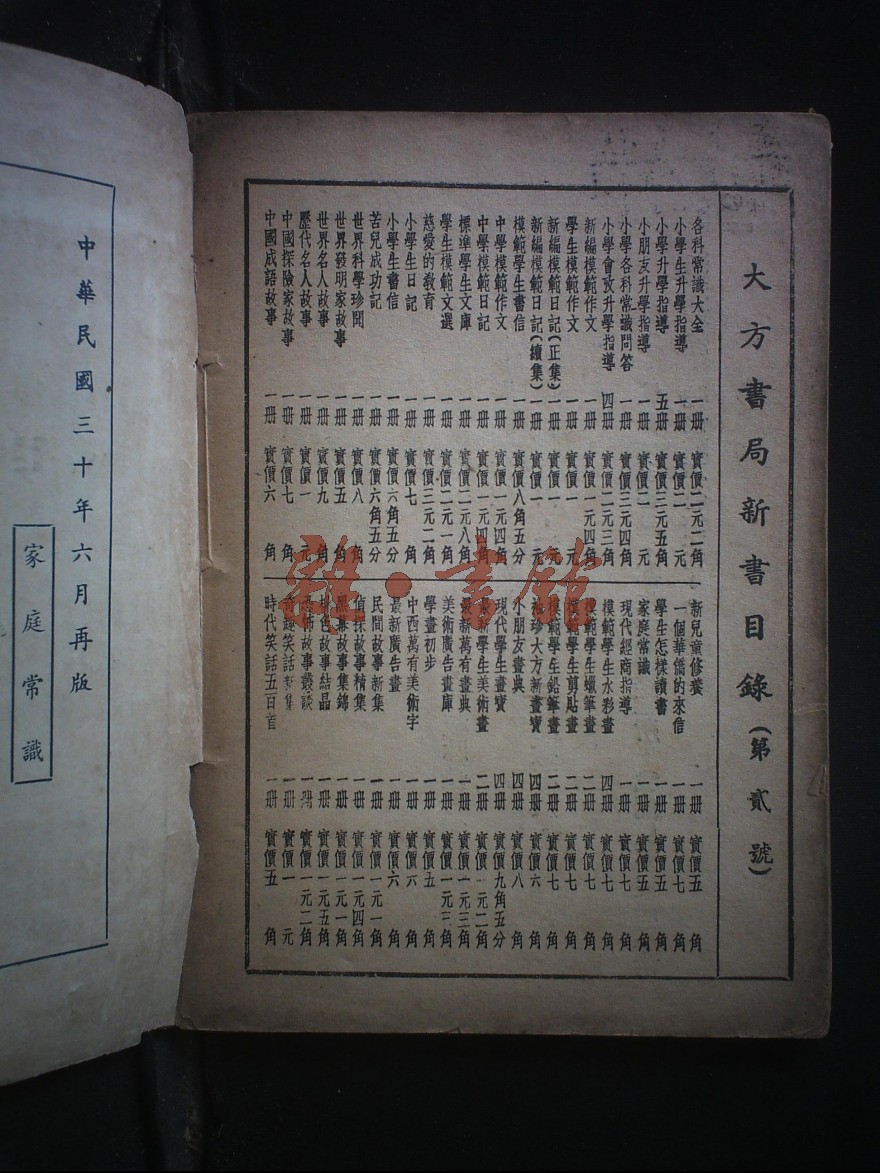 大方書局新書目錄(第貳號)
各科常識大全 一冊 實價二元二角
小學生升學指導 一冊 實價二元
小學升學指導 五冊 實價三元五角
小朋友升學指導 一冊 實價二元
小學各科常識問答 一冊 實價三元四角
小學會攷升學指導 四冊 實價二元三角
新編模範作文 一冊 實價一元四角
學生模範作文 一冊 實價一元
新編模範日記(正集) 一冊 實價一元
新編模範日記(續集) 一冊 實價一元
模範學生書信 一冊 實價八角五分
中學模範作文 一冊 實價一元四角
中學模範日記 一冊 實價一元四角
標準學生文庫 一冊 實價二元八角
學生模範文選 一冊 實價二元一角
慈愛的教育 一冊 實價三元二角
小學生日記 一冊 實價七角
小學生書信 一冊 實價六角五分
苦兒成功記 一冊 實價六角五分
世界科學珍聞 一冊 實價八角
世界發明家故事 一冊 實價五角
世界名人故事 一冊 實價九角
歷代名人故事 一冊 實價一元
中國探險家故事 一冊 實價七角
中國成語故事 一冊 實價六角
新兒童修養 一冊 實價五角
一個華僑的來信 一冊 實價七角
學生怎樣讀書 一冊 實價五角
家庭常識 一冊 實價五角
現代經商指導 一冊 實價七角
模範學生水彩畫 四冊 實價七角
模範學生蠟筆畫 二冊 實價七角
模範學生剪貼畫 二冊 實價七角
模範學生鉛筆畫 二冊 實價七角
袖珍大方新畫寶 四冊 實價六角
小朋友畫典 一冊 實價八角
現代學生畫寶 四冊 實價九角五分
最新學生美術畫 二冊 實價一元二角
最新萬有畫典 一冊 實價一元三角
美術廣告畫庫 一冊 實價一元三角
學畫初步 一冊 實價五角
中西萬有美術字 一冊 實價六角
最新廣告畫 一冊 實價六角
民間故事新集 一冊 實價一元一角
偵探故事精集 一冊 實價一元四角
黑幕故事集錦 一冊 實價一元一角
桃色故事結晶 一冊 實價一元五角
恐怖故事叢談 一冊 實價一元二角
奇緣笑話新集 一冊 實價一元
時代笑話五百首 一冊 實價五角
中華民國三十年六月再版
家庭常識
雜·書館